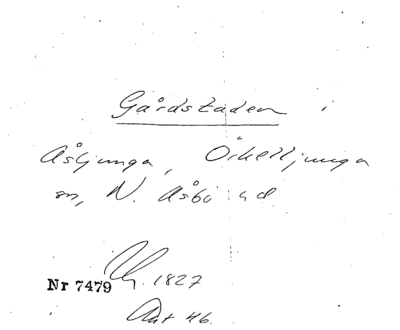 Gårdstaden i
Åsljunga, Örkelljunga
sn, N. Åsbo hd
Nr 7479 M. 1827
Akt 46.